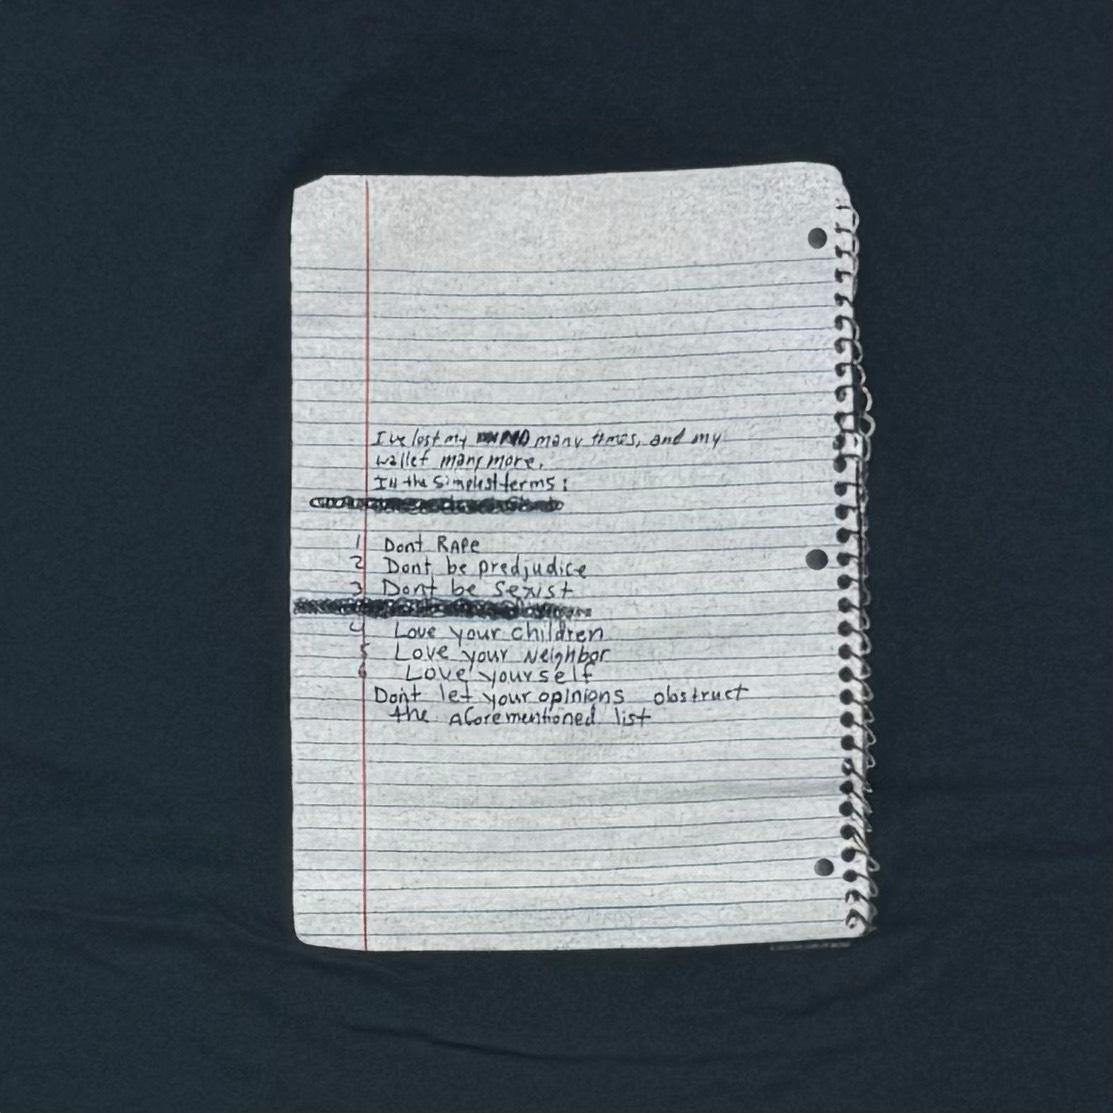 I've lost my MIND many times, and my
wallet many more.
IN the simplest terms:
1 Dont RAPe
2 Dont be predjudice
3 Dont be sexist
4 Love your children
5 Love your Neighbor
6 Love yourself
Don't let your opinions obstruct
the Aforementioned list